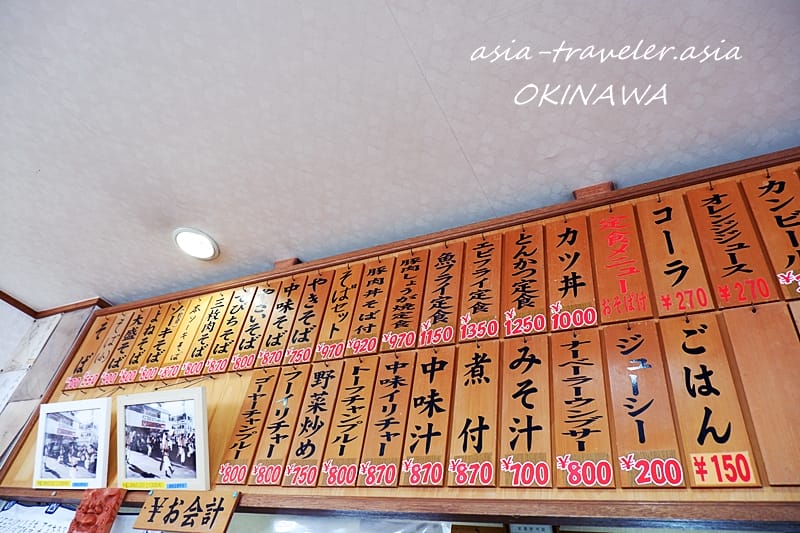 asia-traveler.asia
OKINAWA
カンビール
オレンジジュース
¥270
コーラ
¥270
定食メニュー
おそば付
カツ丼
¥1000
とんかつ定食
¥1250
エビフライ定食
¥1350
魚フライ定食
¥1150
豚肉しょうが焼定食
¥970
豚肉丼そば付
¥920
そばセット
¥970
やきそば
¥750
中味そば
¥870
そば
てびちそば
¥800
三枚肉そば
大盛
そば
ごはん
¥150
ジューシー
¥200
ナーベーラーウンブサー
¥800
みそ汁
¥700
煮付
¥870
中味汁
¥870
中味イリチャー
¥870
トーフチャンプルー
¥800
野菜炒め
¥750
フーイリチャー
¥800
ゴーヤーチャンプルー
¥800
¥お会計